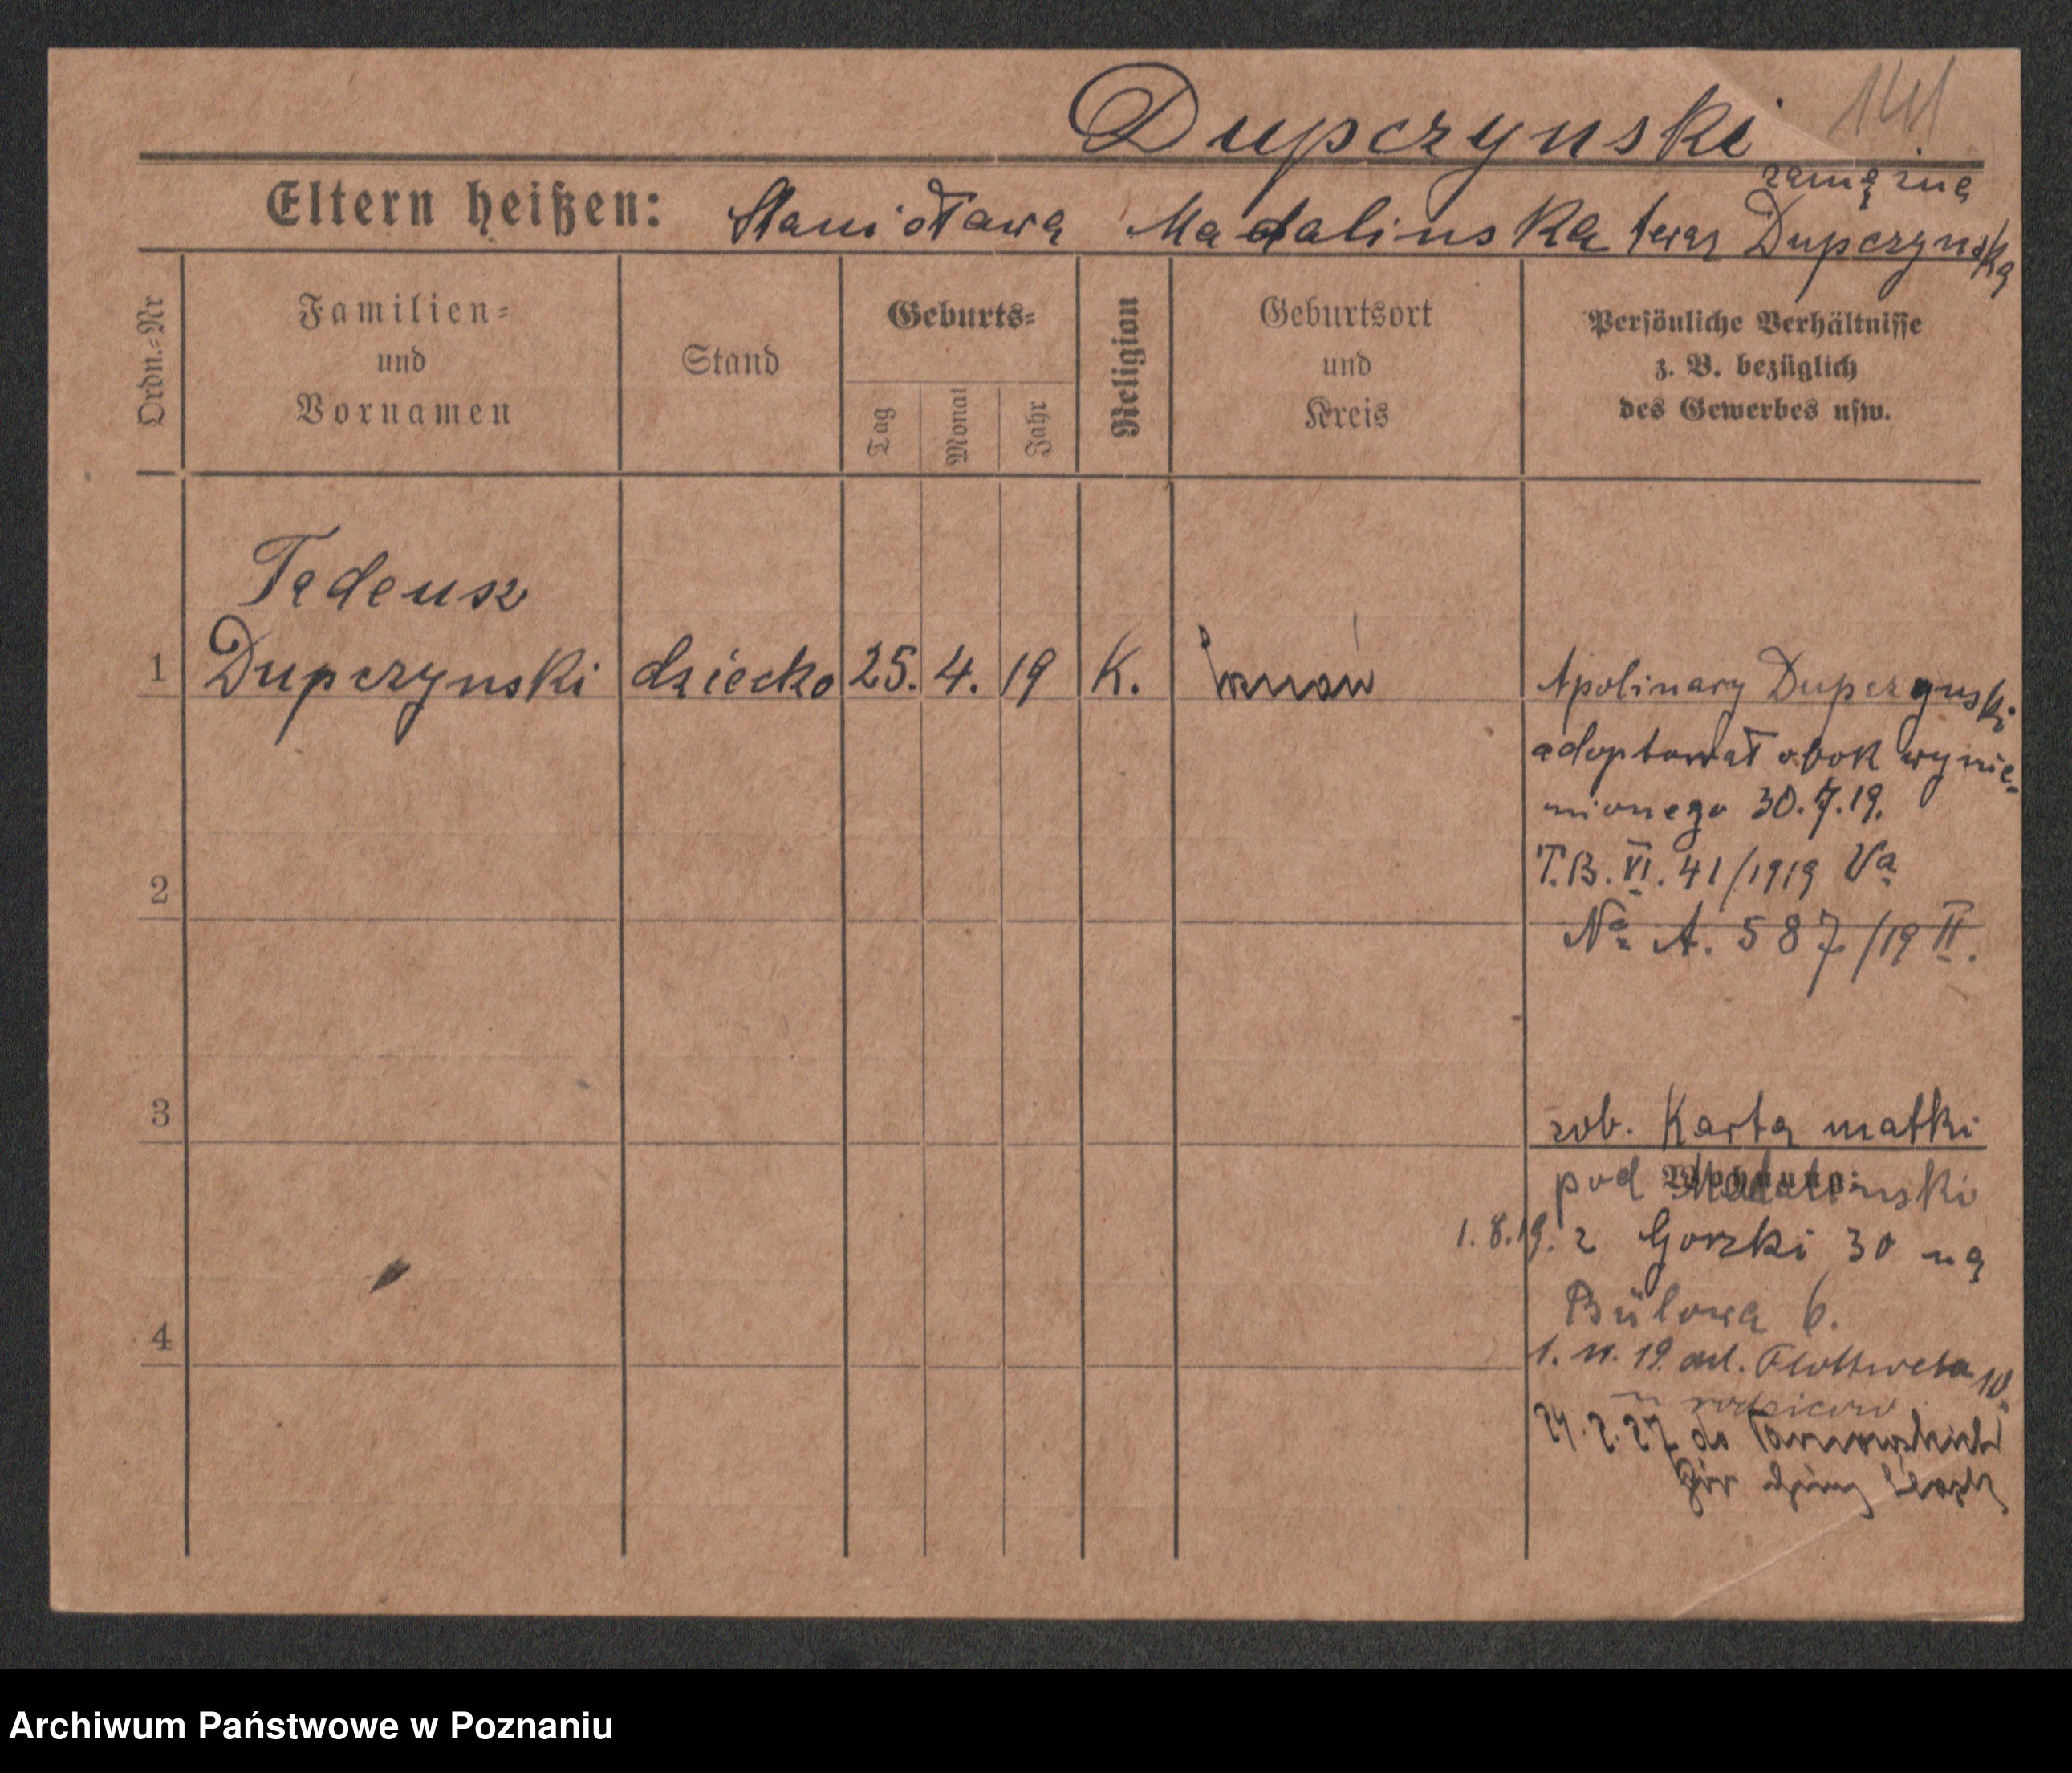 141
Dupczynski
Eltern heißen: Stanisława Madalinska teraz zamężna Dupczynska
Ordn.-Nr
Familien-
und
Vornamen
Stand
Geburts-
Tag
Monat
Jahr
Religion
Geburtsort
und
Kreis
Persönliche Verhältnisse
z. B. bezüglich
des Gewerbes usw.
Tadeusz
1 Dupczynski dziecko 25. 4. 19 K. Poznań Apolinary Dupczynski
adoptował obok wymie-
nionego 30.7.19.
T.B. VI. 41/1919 Va
2
No A. 587/19 II.
3
zob. Karta matki
pod Madalinski
Wohnung:
1.8.19. z Gorzki 30 na
Bülowa 6.
4
1. 11. 19. Flottwela 10.
u rodziców
24.2.27 do Tarnowskich
Gór Śląsk
Archiwum Państwowe w Poznaniu